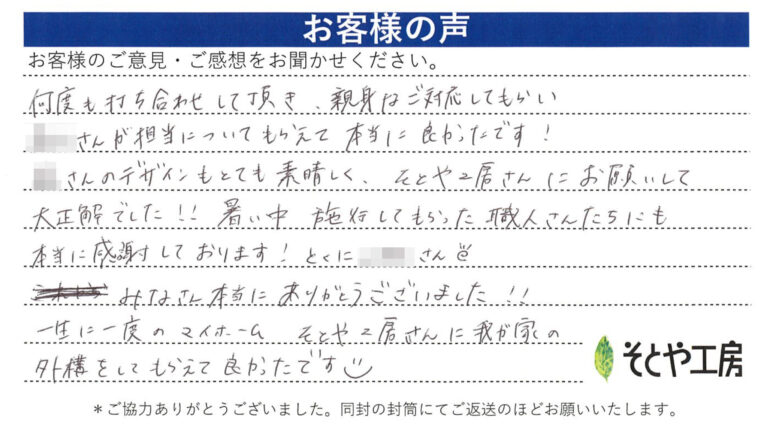 お客様の声
お客様のご意見・ご感想をお聞かせください。
何度も打ち合わせして頂き、親身なご対応してもらい
さんが相当についてもらえて 本当に良かったです!
さんのデザインもとても素晴しく、そとや工房さんにお願いして
大正解でした!! 暑い中 施行してもらった職人さんたちにも
本当に感謝しております! とくに さん
みなさん本当にありがとうございました!!
一生に一度のマイホーム そとや工房さんに我が家の
外構をしてもらえて良かったです
そとや工房
*ご協力ありがとうございました。同封の封筒にてご返送のほどお願いいたします。